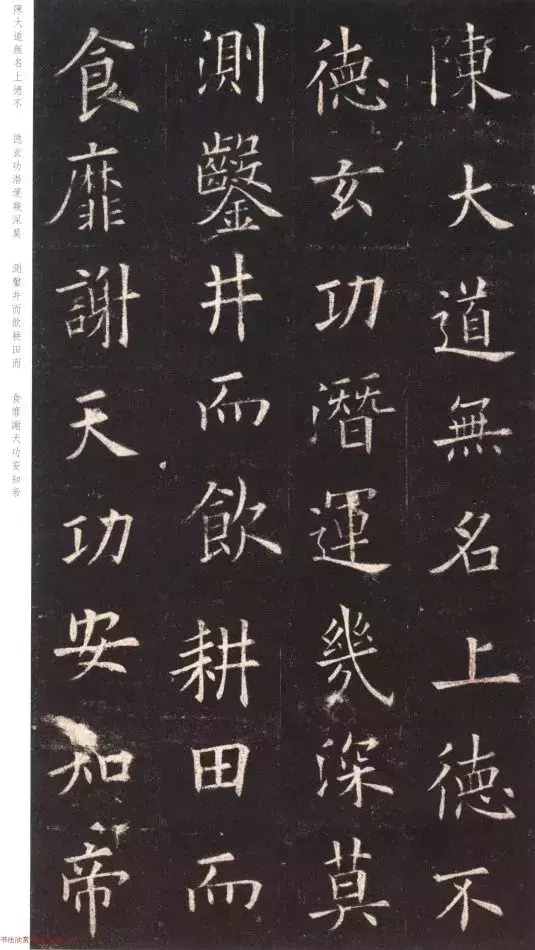 陳大道無名上德不
德玄功潛運幾深莫
測鑿井而飲耕田而
食靡謝天功安知帝
陳大道無名上德不 德玄功潛運幾深莫 測鑿井而飲耕田而 食靡謝天功安知帝
书法欣赏